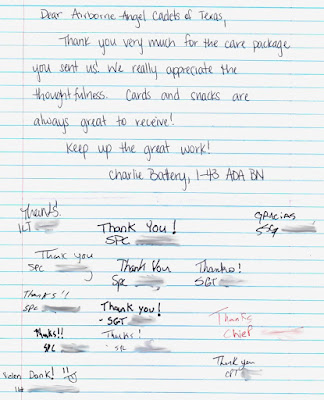 Dear Airborne Angel Cadets of Texas,
Thank you very much for the care package
you sent us! We really appreciate the
thoughtfulness. Cards and snacks are
always great to receive!
Keep up the great work!
Charlie Battery, 1-43 ADA BN
Thanks!
1LT
Thank You!
SPC
gracias
SSG
Thank you
SPC
Thank You
SPC
Thanks!
SGT
Thanks!!
SPC
Thank you!
- SGT
Thanks
Chief
Thanks!!
SPC
Thanks!
- SPC
Thank you
CPT
Vielen Dank! !!
1LT